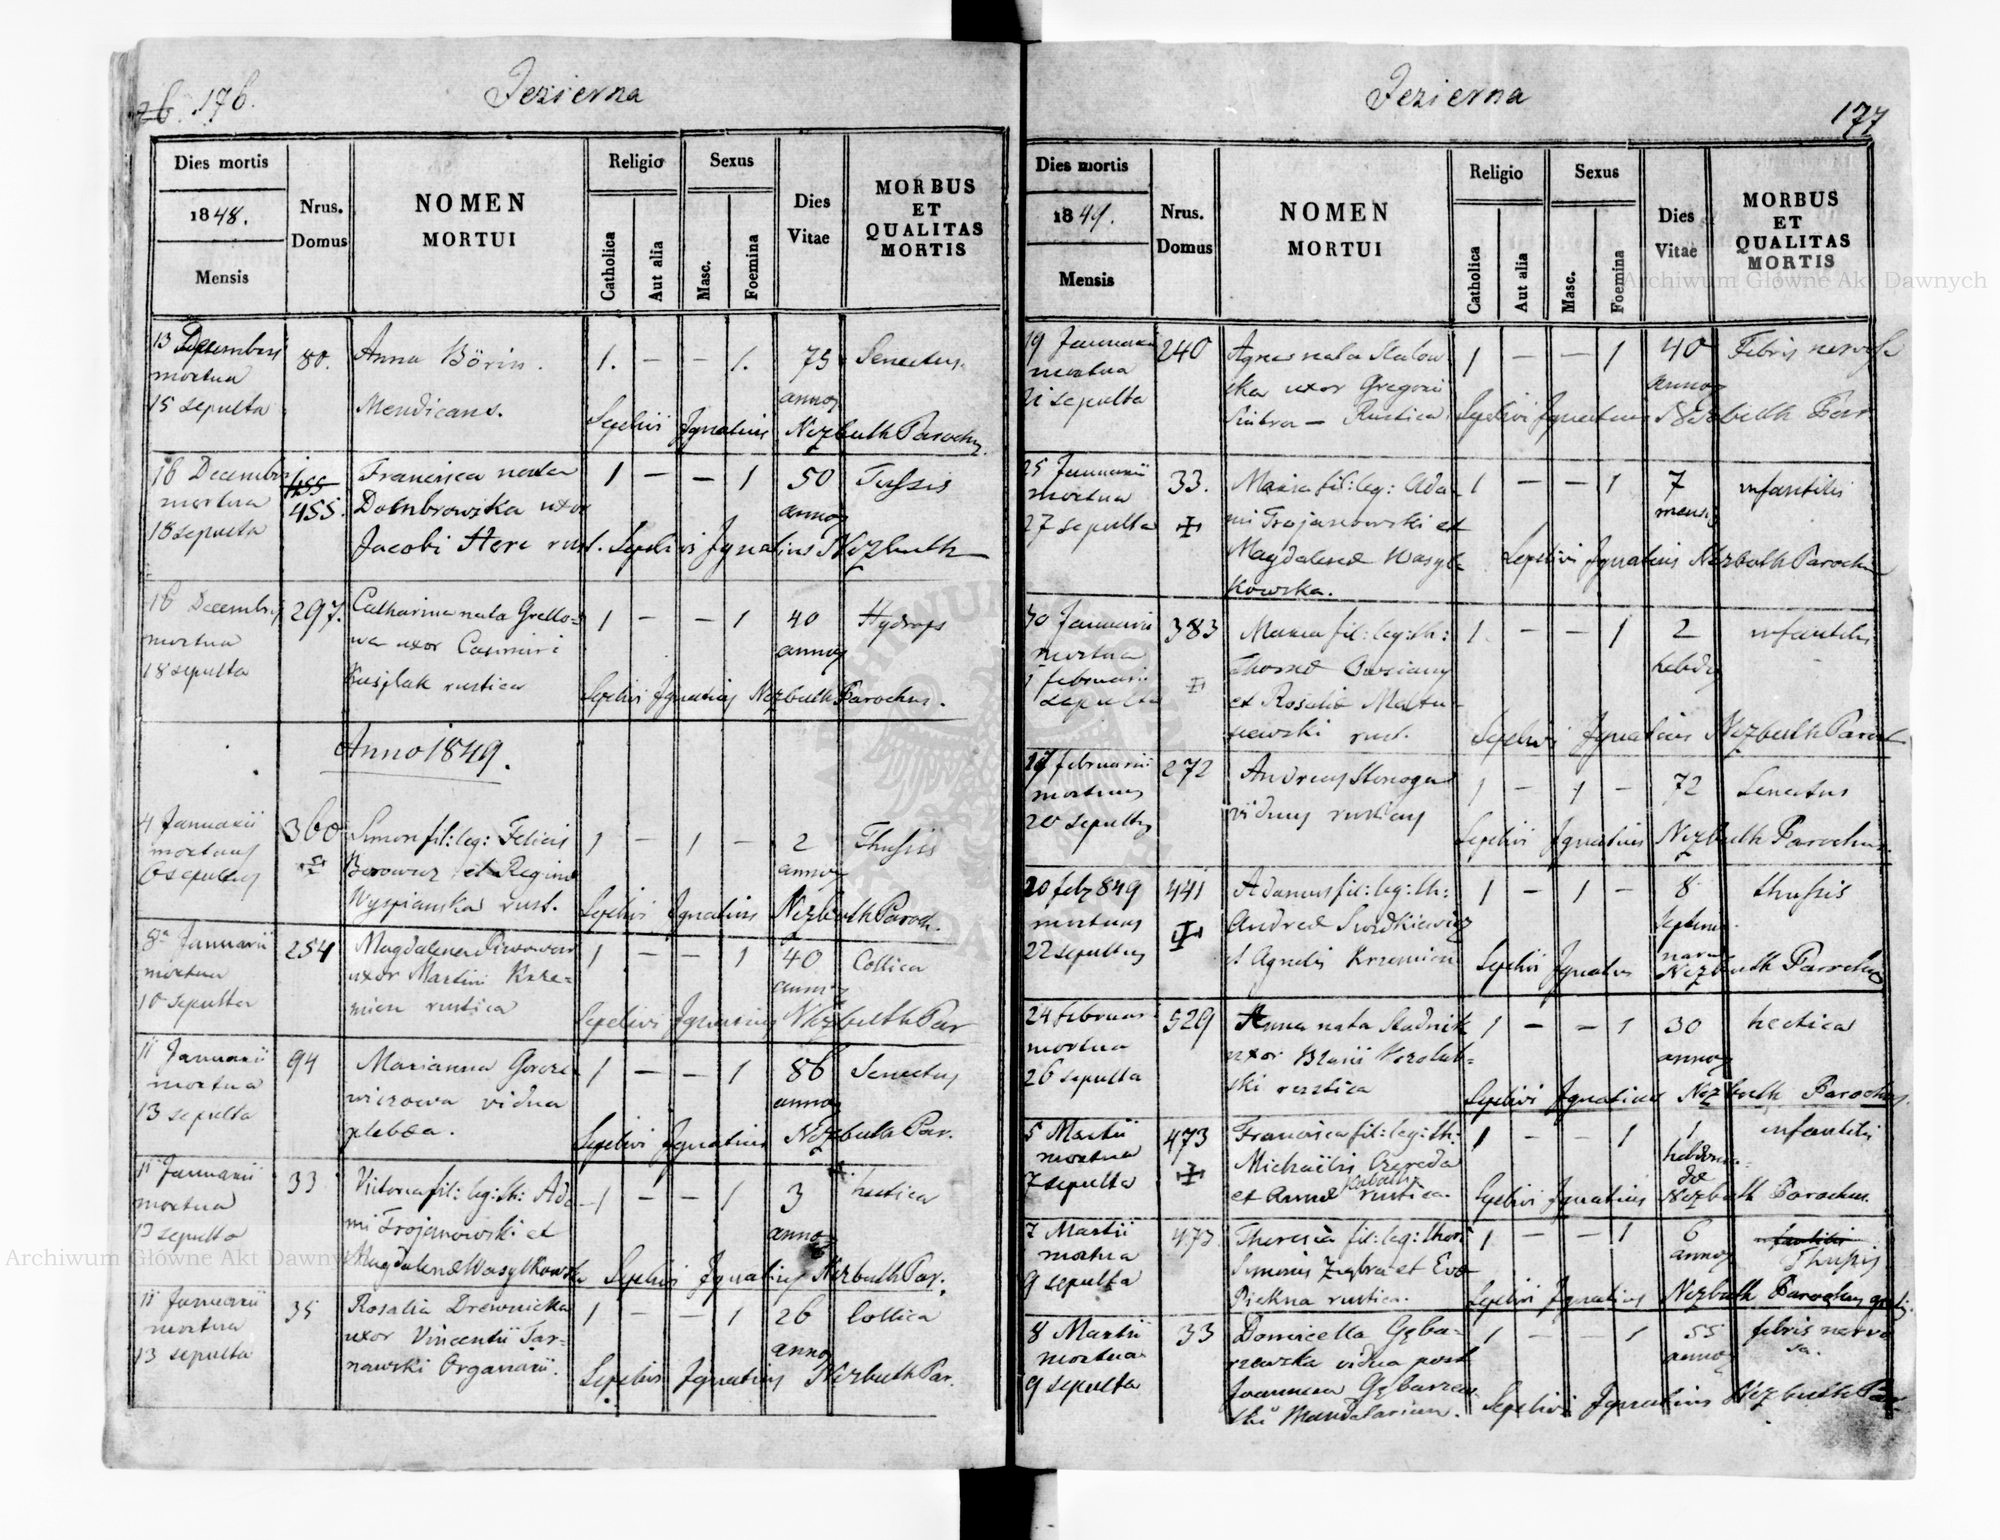 176.
Jezierna
Dies mortis
1848.
Mensis
Nrus.
Domus
NOMEN
MORTUI
Religio
Catholica
Aut alia
Sexus
Masc.
Foemina
Dies
Vitae
MORBUS
ET
QUALITAS
MORTIS
13 Decembris 80. Anna Börin. 1. — — 1. 75 Senectus.
mortua annoz
15 sepulta Mendicans. Sepelivi Ignatius Nezbuth Parochus
16 Decembris 455 Francisca nata 1 — — 1 50 Tussis
mortua 455. Dombrowska uxor annoz
18 sepulta Jacobi Here rust. Sepelivi Ignatius Nezbuth
16 Decembris 297. Catharina nata Grello- 1 — — 1 40 Hydrops
mortua wa uxor Casimiri annoz
18 sepulta rustica Sepelivi Ignatius Nezbuth Parochus.
Anno 1849.
4 Januarii 360 Simon fil: leg: Felicis 1 — 1 — 2 Thussis
mortuus Borowicz et Reginae annoz
6 sepultus Wyspianska rust. Sepelivi Ignatius Nezbuth Paroch.
8 Januarii 254 Magdalena Piwowar 1 — — 1 40 Collica
mortua uxor Martini Krze- annoz
10 sepulta mien rustica Sepelivi Ignatius Nezbuth Par
11 Januarii 94 Marianna 1 — — 1 86 Senectus
mortua wiczowa vidua annoz
13 sepulta plebea. Sepelivi Ignatius Nezbuth Par.
11 Januarii 33 Victoria fil: leg: th: Ada- 1 — — 1 3 hectica
mortua mi Trojanowski et annoz
13 sepulta Magdalenae Wasylkowska Sepelivi Ignatius Nezbuth Par.
11 Januarii 35 Rosalia Drewnicka 1 — 1 26 Collica
mortua uxor Vincentii Tar- annoz
13 sepulta nawski Organarii. Sepelivi Ignatius Nezbuth Par.
Jezierna
177
Dies mortis
1849.
Mensis
Nrus.
Domus
NOMEN
MORTUI
Religio
Catholica
Aut alia
Sexus
Masc.
Foemina
Dies
Vitae
MORBUS
ET
QUALITAS
MORTIS
19 Januarii 240 Agnes nata Skalow 1 — — 1 40 Febris nervosa
mortua ska uxor Gregorii annoz
21 sepulta — Rustica Sepelivi Ignatius Nezbuth Par
25 Januarii 33. Maria fil: leg: Ada- 1 — — 1 7 infantilis
mortua mi Trojanowski et mensis
27 sepulta Magdalenae Wasyl- Sepelivi Ignatius Nezbuth Parochus
kowska.
30 Januarii 383 Maria fil: leg: th: 1 — — 1 2 infantilis
mortua Thomae hebdz
1 februarii et Rosaliae Matu-
sepulta siewski rust. Sepelivi Ignatius Nezbuth Paroch
17 februarii 272 Andreas 1 — 1 — 72 Senectus
mortuus viduus rusticus
20 sepultus Sepelivi Ignatius Nezbuth Parochus.
20 febr 849 441 Adamus fil: leg: th: 1 — 1 — 8 thussis
mortuus Andreae
22 sepultus et Agnetis Krzemien Sepelivi Ignatius Nezbuth Parochus
24 februar 529 Anna nata Stadnik 1 — — 1 30 hectica
mortua uxor annoz
26 sepulta ski rustica Sepelivi Ignatius Nezbuth Parochus.
5 Martii 473 Francisca fil: leg: th: 1 — — 1 1 infantilis
mortua Michaelis Czereda
7 sepulta et Annae rustica. Sepelivi Ignatius Nezbuth Parochus.
7 Martii 473. Theresia fil: leg: thori 1 — — 1 6 infantilis
mortua Simonis et Evae annoz Thussis
9 sepulta Piekna rustica. Sepelivi Ignatius Nezbuth Parochus
8 Martii 33 Domicella Gęba- 1 — — 1 55 febris nervo
mortua rzewska vidua post annoz sa.
9 sepulta Joannem Gębarzew-
ski Mandatarium. Sepelivi Ignatius Nezbuth Par.
Archiwum Główne Akt Dawnych
Archiwum Główne Akt Dawnych